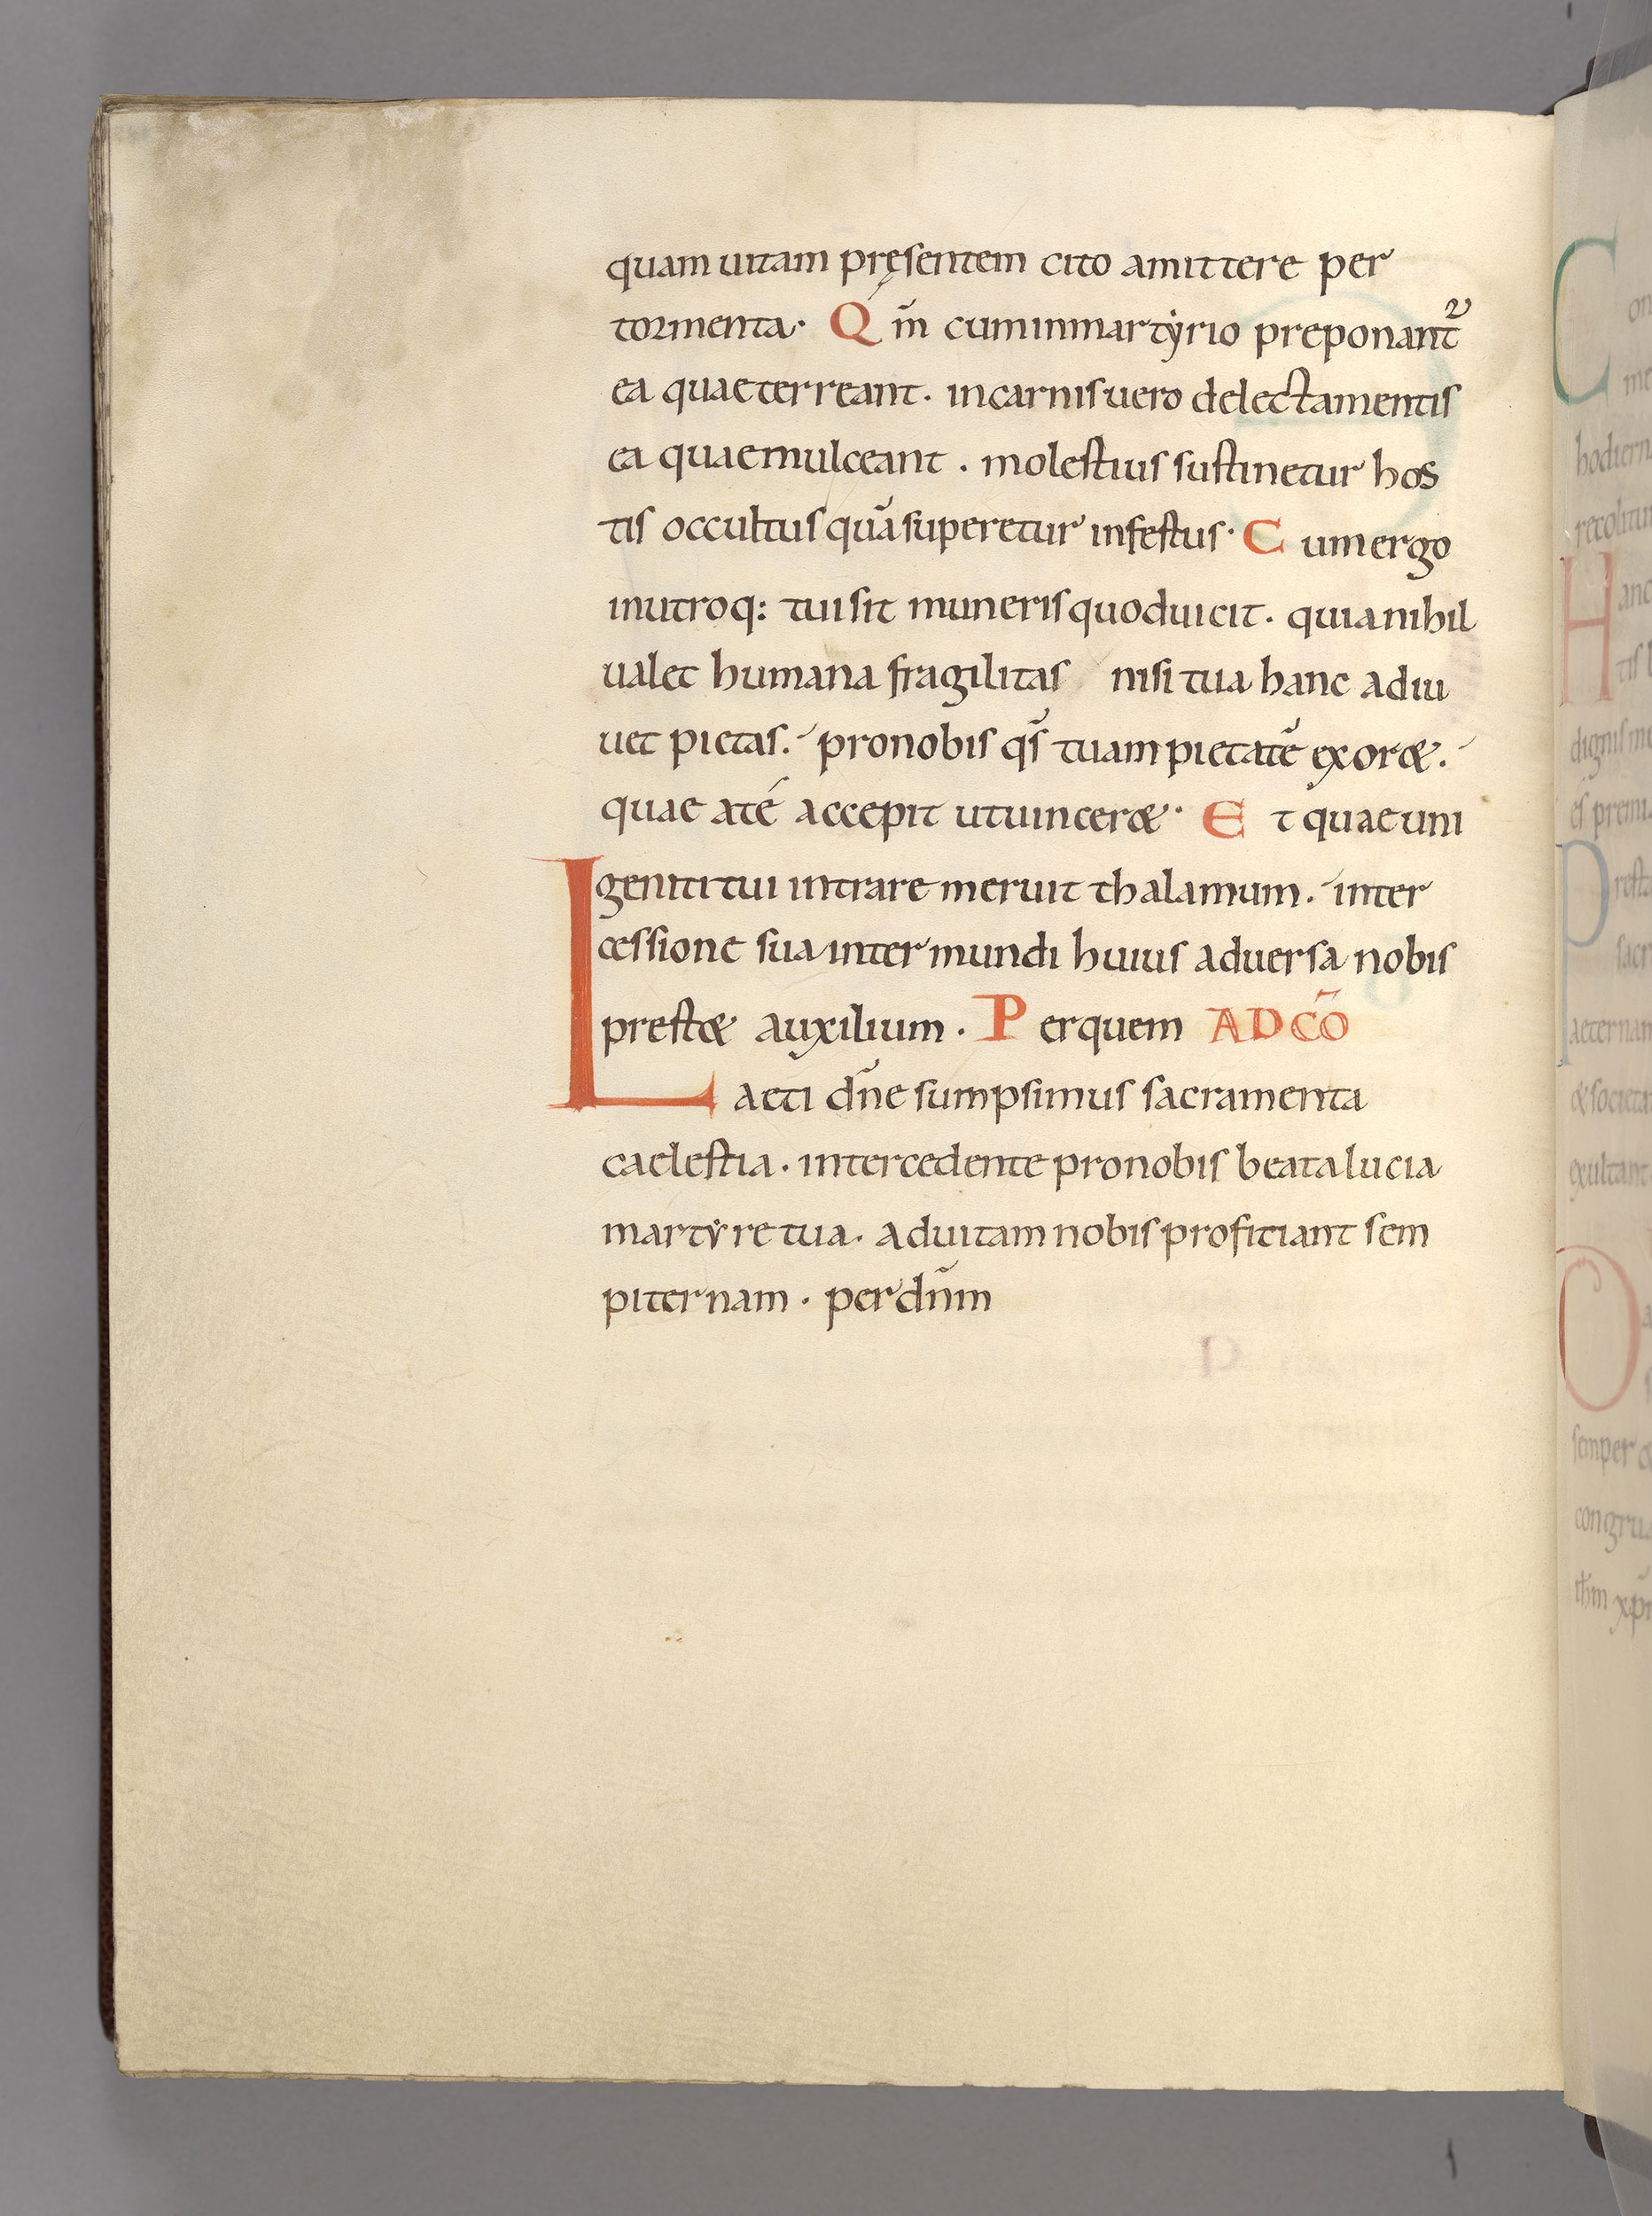 quam uitam pręsentem cito amittere per
tormenta· Qm̄ cum in martẏrio preponant᷑
ea quae terreant. in carnis uero delectamentis
ea quae mulceant. molestius sustinetur hos
tis occultus quā superetur infestus· Cum ergo
in utroq: tui sit muneris quod uicit. quia nihil
ualet humana fragilitas nisi tua hanc adiu
uet pietas. pro nobis qs̄ tuam pietatē exoret.
quae a té accepit ut uinceret· Et quae uni
geniti tui intrare meruit thalamum. inter
cessione sua inter mundi huius aduersa nobis
prestet auxilium. Per quem AD CŌ
Laeti dn̄e sumpsimus sacramenta
caelestia. intercedente pro nobis beata lucia
martyre tua. ad uitam nobis profitiant sem
piternam. per dn̄m
C
me
hodiern
recolitur
Hanc
tis
dignis me
Prest
sacr
aeternam
& societa
exultant
O
semper
congrua